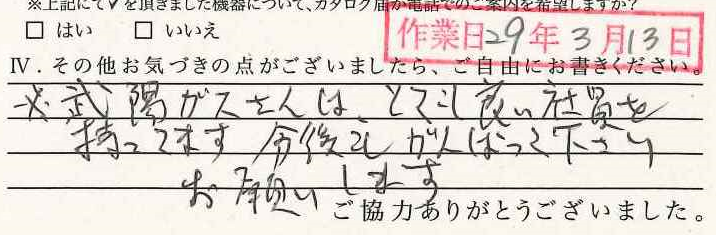 ※上記にて✓を頂きました機器について、カタログ届か電話でのご案内を希望しますか?
□ はい □ いいえ
作業日29年3月13日
Ⅳ．その他お気づきの点がございましたら、ご自由にお書きください。
※武陽ガスさんは、とても良い社員を
持ってます 今後もがんばって下さい
お願いします
ご協力ありがとうございました。